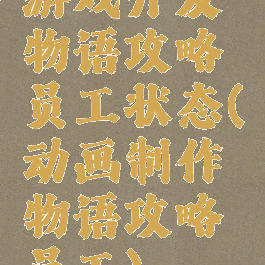 游戏开发
物语攻略
员工状态(
动画制作
物语攻略
员工)